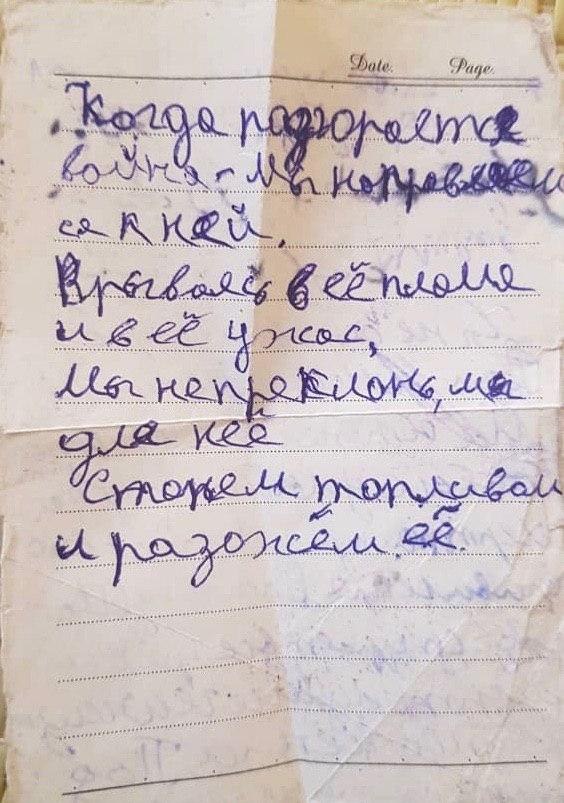 Date. Page.
Когда разгорается
война - мы направляем
ся к ней.
Врываясь в её пламя
и в её ужас,
Мы непреклоны, мы
для неё
Станем топливом
и разожжём её.